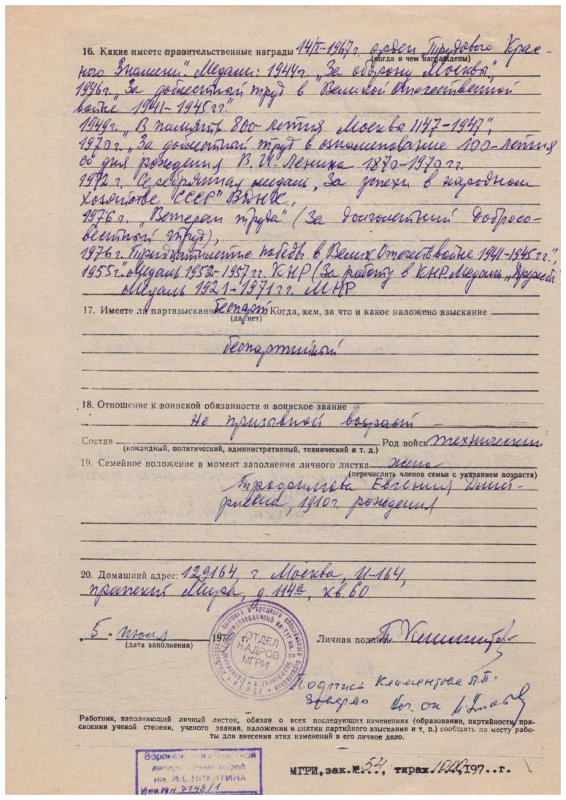 16. Какие имеете правительственные награды 14/I-1967г орден "Трудового Крас-
(когда и чем награждены)
ного Знамени". Медали: 1944г. "За оборону Москвы",
1946г. "За доблестный труд в Великой Отечественной
войне 1941-1945гг"
1949г. "В память 800-летия Москвы 1147-1947",
1970г. "За доблестный труд в ознаменование 100-летия
со дня рождения В.И. Ленина 1870-1970гг.
1972г. Серебрянная медаль "За успехи в народном
хозяйстве СССР" ВДНХ,
1976г. "Ветеран труда" (За долголетний добросо-
вестный труд),
1976г. Тридцатилетие победы в Велик. Отечеств войне 1941-1945гг.",
1955г. Медаль 1952-1957гг. КНР (За работу в КНР. Медаль "Дружбы"
Медаль 1921-1971гг. МНР
17. Имеете ли партвзыскания Беспарт Когда, кем, за что и какое наложено взыскание
(да, нет)
беспартийный
18. Отношение к воинской обязанности и воинское звание
Не призывной возраст
Состав Род войск технический
(командный, политический, административный, технический и т. д.)
19. Семейное положение в момент заполнения личного листка жена
(перечислить членов семьи с указанием возраста)
Евгения Дмит-
риевна, 1910г рождения
20. Домашний адрес: 129164, г. Москва, И-164,
проспект Мира, д. 114а, кв. 60
5 июля 197 г. Личная подпись
(дата заполнения)
ОТДЕЛ
КАДРОВ
МГРИ
Подпись Климентова П.П.
Заверяю
Работник, заполняющий личный листок, обязан о всех последующих изменениях (образовании, партийности, при-
своении ученой степени, ученого звания, наложении и снятии партийного взыскания и т. п.) сообщать по месту рабо-
ты для внесения этих изменений в его личное дело.
Воронежский областной
литературный музей
им. И.С. НИКИТИНА
Инв №
МГРИ, зак. № 54, тираж 1000, 197..г.